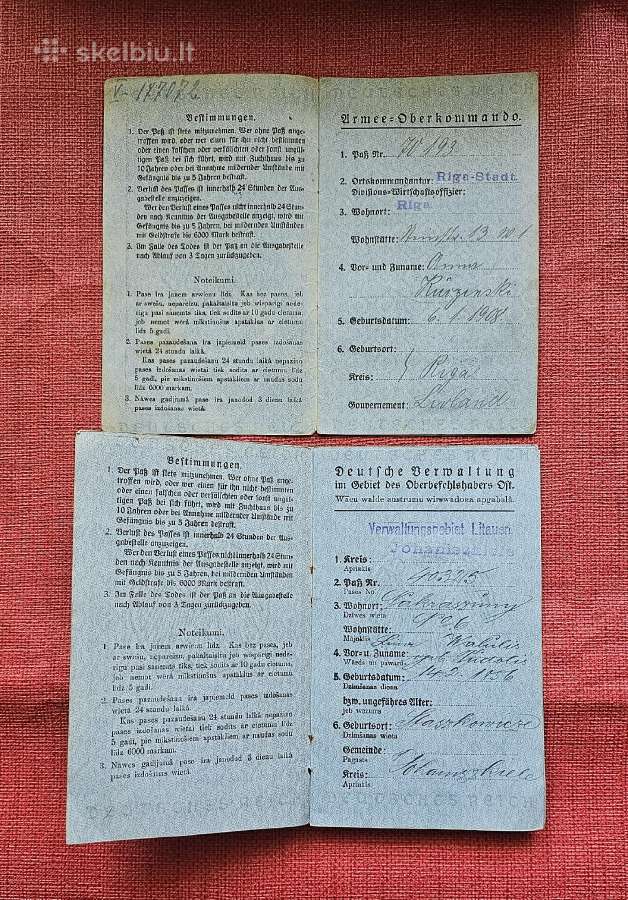 skelbiu.lt
V- 177072
Bestimmungen.
1. Der Paß ist stets mitzunehmen. Wer ohne Paß ange-
troffen wird, oder wer einen für ihn nicht bestimmten
oder einen falschen oder verfälschten oder sonst ungül-
tigen Paß bei sich führt, wird mit Zuchthaus bis zu
10 Jahren oder bei Annahme mildernder Umstände mit
Gefängnis bis zu 5 Jahren bestraft.
2. Verlust des Passes ist innerhalb 24 Stunden der Aus-
gabestelle anzuzeigen.
Wer den Verlust eines Passes nicht innerhalb 24 Stun-
den nach Kenntnis der Ausgabestelle anzeigt, wird mit
Gefängnis bis zu 5 Jahren, bei mildernden Umständen
mit Geldstrafe bis 6000 Mark bestraft.
3. Im Falle des Todes ist der Paß an die Ausgabestelle
nach Ablauf von 3 Tagen zurückzugeben.
Noteikumi.
1. Pase ira janem arwienu lidz. Kas bez pases, jeb
ar swešu, nepareizu, pakaltaisitu jeb wisparigi nede-
rigu pasi sanemts tiks, tiek sodits ar 10 gadu cietumu
jeb nemot wērā mikstinušus apstaklus ar cietumu
lidz 5 gadi.
2. Pases pazaudešana ira japiemeld pases izdošanas
wietā 24 stundu laikā.
Kas pases pazaudešanu 24 stundu laikā nepazino
pases izdošanas wietai tiek sodits ar cietumu lidz
5 gadi, pie mikstinušiem apstakliem ar naudas sodu
lidz 6000 markam.
3. Nāwes gadijumā pase ira janodod 3 dienu laikā
pases izdošanas wietā.
DEUTSCHES REICH
Armee-Oberkommando.
1. Paß Nr. 193
2. Ortskommandantur: Riga-Stadt.
Divisions-Wirtschaftsoffizier:
Riga
3. Wohnort:
Wohnstätte: 13
4. Vor- und Zuname: Anna
Kurzinski
5. Geburtsdatum: 6. 1. 1901
6. Geburtsort: Riga
Kreis:
Gouvernement: Livland
Bestimmungen.
1. Der Paß ist stets mitzunehmen. Wer ohne Paß ange-
troffen wird, oder wer einen für ihn nicht bestimmten
oder einen falschen oder verfälschten oder sonst ungül-
tigen Paß bei sich führt, wird mit Zuchthaus bis zu
10 Jahren oder bei Annahme mildernder Umstände mit
Gefängnis bis zu 5 Jahren bestraft.
2. Verlust des Passes ist innerhalb 24 Stunden der Aus-
gabestelle anzuzeigen.
Wer den Verlust eines Passes nicht innerhalb 24 Stun-
den nach Kenntnis der Ausgabestelle anzeigt, wird mit
Gefängnis bis zu 5 Jahren, bei mildernden Umständen
mit Geldstrafe bis 6000 Mark bestraft.
3. Im Falle des Todes ist der Paß an die Ausgabestelle
nach Ablauf von 3 Tagen zurückzugeben.
Noteikumi.
1. Pase ira janem arwienu lidz. Kas bez pases, jeb
ar swešu, nepareizu, pakaltaisitu jeb wispārigi nede-
rigu pasi sanemts tiks, tiek sodits ar 10 gadu cietumu
jeb nemot wērā mikstinušus apstaklus ar cietumu
lidz 5 gadi.
2. Pases pazaudešana ira japiemeld pases izdošanas
wietā 24 stundu laikā.
Kas pases pazaudešanu 24 stundu laikā nepazino
pases izdošanas wietai tiek sodits ar cietumu lidz
5 gadi, pie mikstinušiem apstakliem ar naudas sodu
lidz 6000 markam.
3. Nāwes gadijumā pase ira janodod 3 dienu laikā
pases izdošanas wietā.
Deutsche Verwaltung
im Gebiet des Oberbefehlshabers Ost.
Wācu walde austrumu wirswadona apgabalā.
Verwaltungsgebiet Litauen
1. Kreis:
Aprinkis
2. Paß Nr.
Pases No
3. Wohnort:
Dziwes wieta
Wohnstätte:
Mājoklis
4. Vor- u. Zuname
Wārds un pawārds
5. Geburtsdatum: 1856
Dzimšanas diena
bzw. ungefähres Alter:
jeb wezums
6. Geburtsort:
Dzimšanas wieta
Gemeinde:
Pagasts
Kreis:
Aprinkis
DEUTSCHES REICH